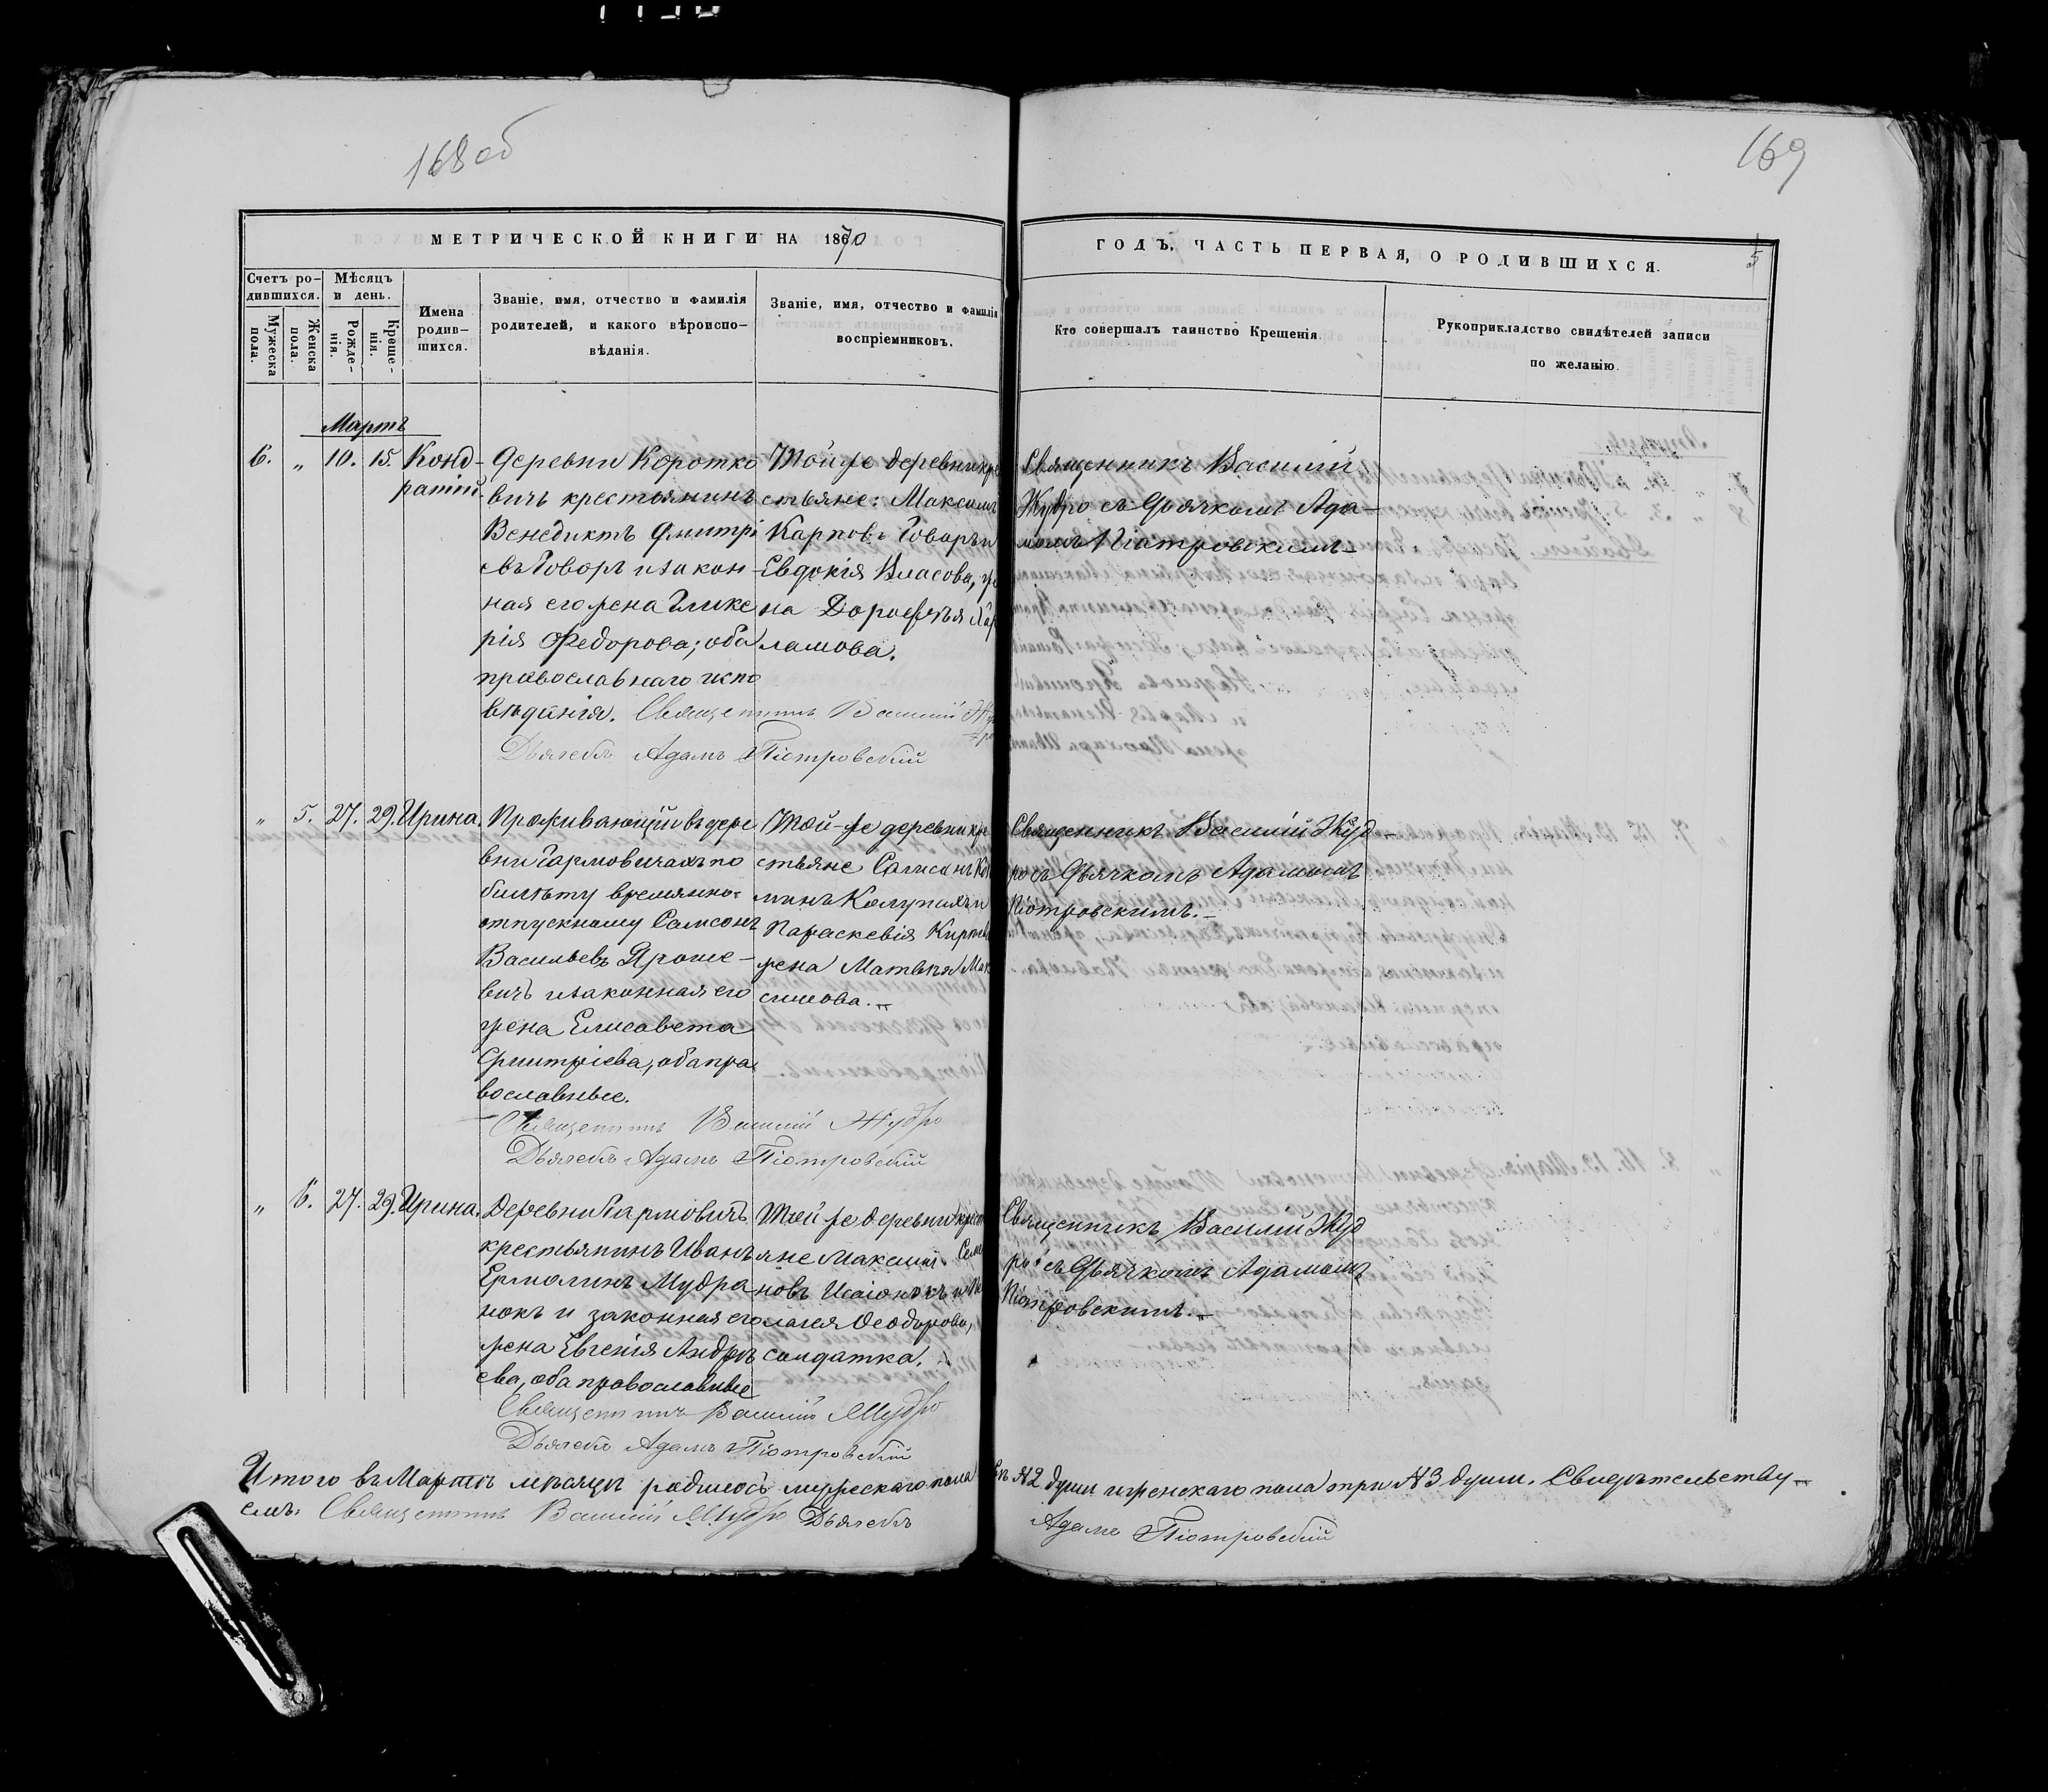 168 об
169
МЕТРИЧЕСКОЙ КНИГИ НА 1870
ГОДЪ, ЧАСТЬ ПЕРВАЯ, О РОДИВШИХСЯ.
5
Счетъ ро-
дившихся.
Мужеска пола.
Женска пола.
Мѣсяцъ
и день.
Рожде-
нія.
Креще-
нія.
Имена
родив-
шихся.
Званіе, имя, отчество и фамилія
родителей, и какого вѣроиспо-
вѣданія.
Званіе, имя, отчество и фамилія
воспріемниковъ.
Кто совершалъ таинство Крещенія.
Рукоприкладство свидѣтелей записи
по желанію.
Мартъ
6. „ 10. 15. Конд-
ратій.
Деревни Коротко
вичъ крестьянинъ
Венедиктъ Дмитрі
евъ Говоръ и закон-
ная его жена Глике
рія Федорова; оба
православнаго испо
вѣданія. Священникъ Василій
Дьячекъ Адамъ Піотровскій
Той же деревни кре
стьяне: Максимъ
Карповъ Говоръ и
Евдокія Власова, же
на Дорофея
ламова.
Священникъ Василій
Жудро съ Дьячкомъ Ада-
момъ Піотровскимъ
„ 5. 27. 29. Ирина.
Проживающій въ дере
вни Гармовичахъ по
билѣту временно-
отпускному Самсонъ
Васильевъ Яроше-
вичъ и законная его
жена Елисавета
Дмитріева, оба пра-
вославные.
Священникъ Василій Жудро
Дьячекъ Адамъ Піотровскій
Той-же деревни кре
стьяне Самсонъ
минъ и
Параскевія
жена Матвѣя Мак
симова.
Священникъ Василій Жуд-
ро съ Дьячкомъ Адамомъ
Піотровскимъ.
„ 6. 27. 29. Ирина.
Деревни Гармовичъ
крестьянинъ Иванъ
Ермолинъ Мудра
нокъ и законная его
жена Евгенія Андрѣ
ева, оба православные
Священникъ Василій Жудро
Дьячекъ Адамъ Піотровскій
Той-же деревни крест
яне Максимъ Семе
новъ и Пе
лагея Феодорова,
солдатка.
Священникъ Василій Жуд
ро съ Дьячкомъ Адамомъ
Піотровскимъ.
Итого въ Мартѣ мѣсяцѣ родилось мужескаго пола № 2 души женскаго пола три № 3 души. Свидѣтельству-
емъ: Священникъ Василій Жудро Дьячекъ Адамъ Піотровскій